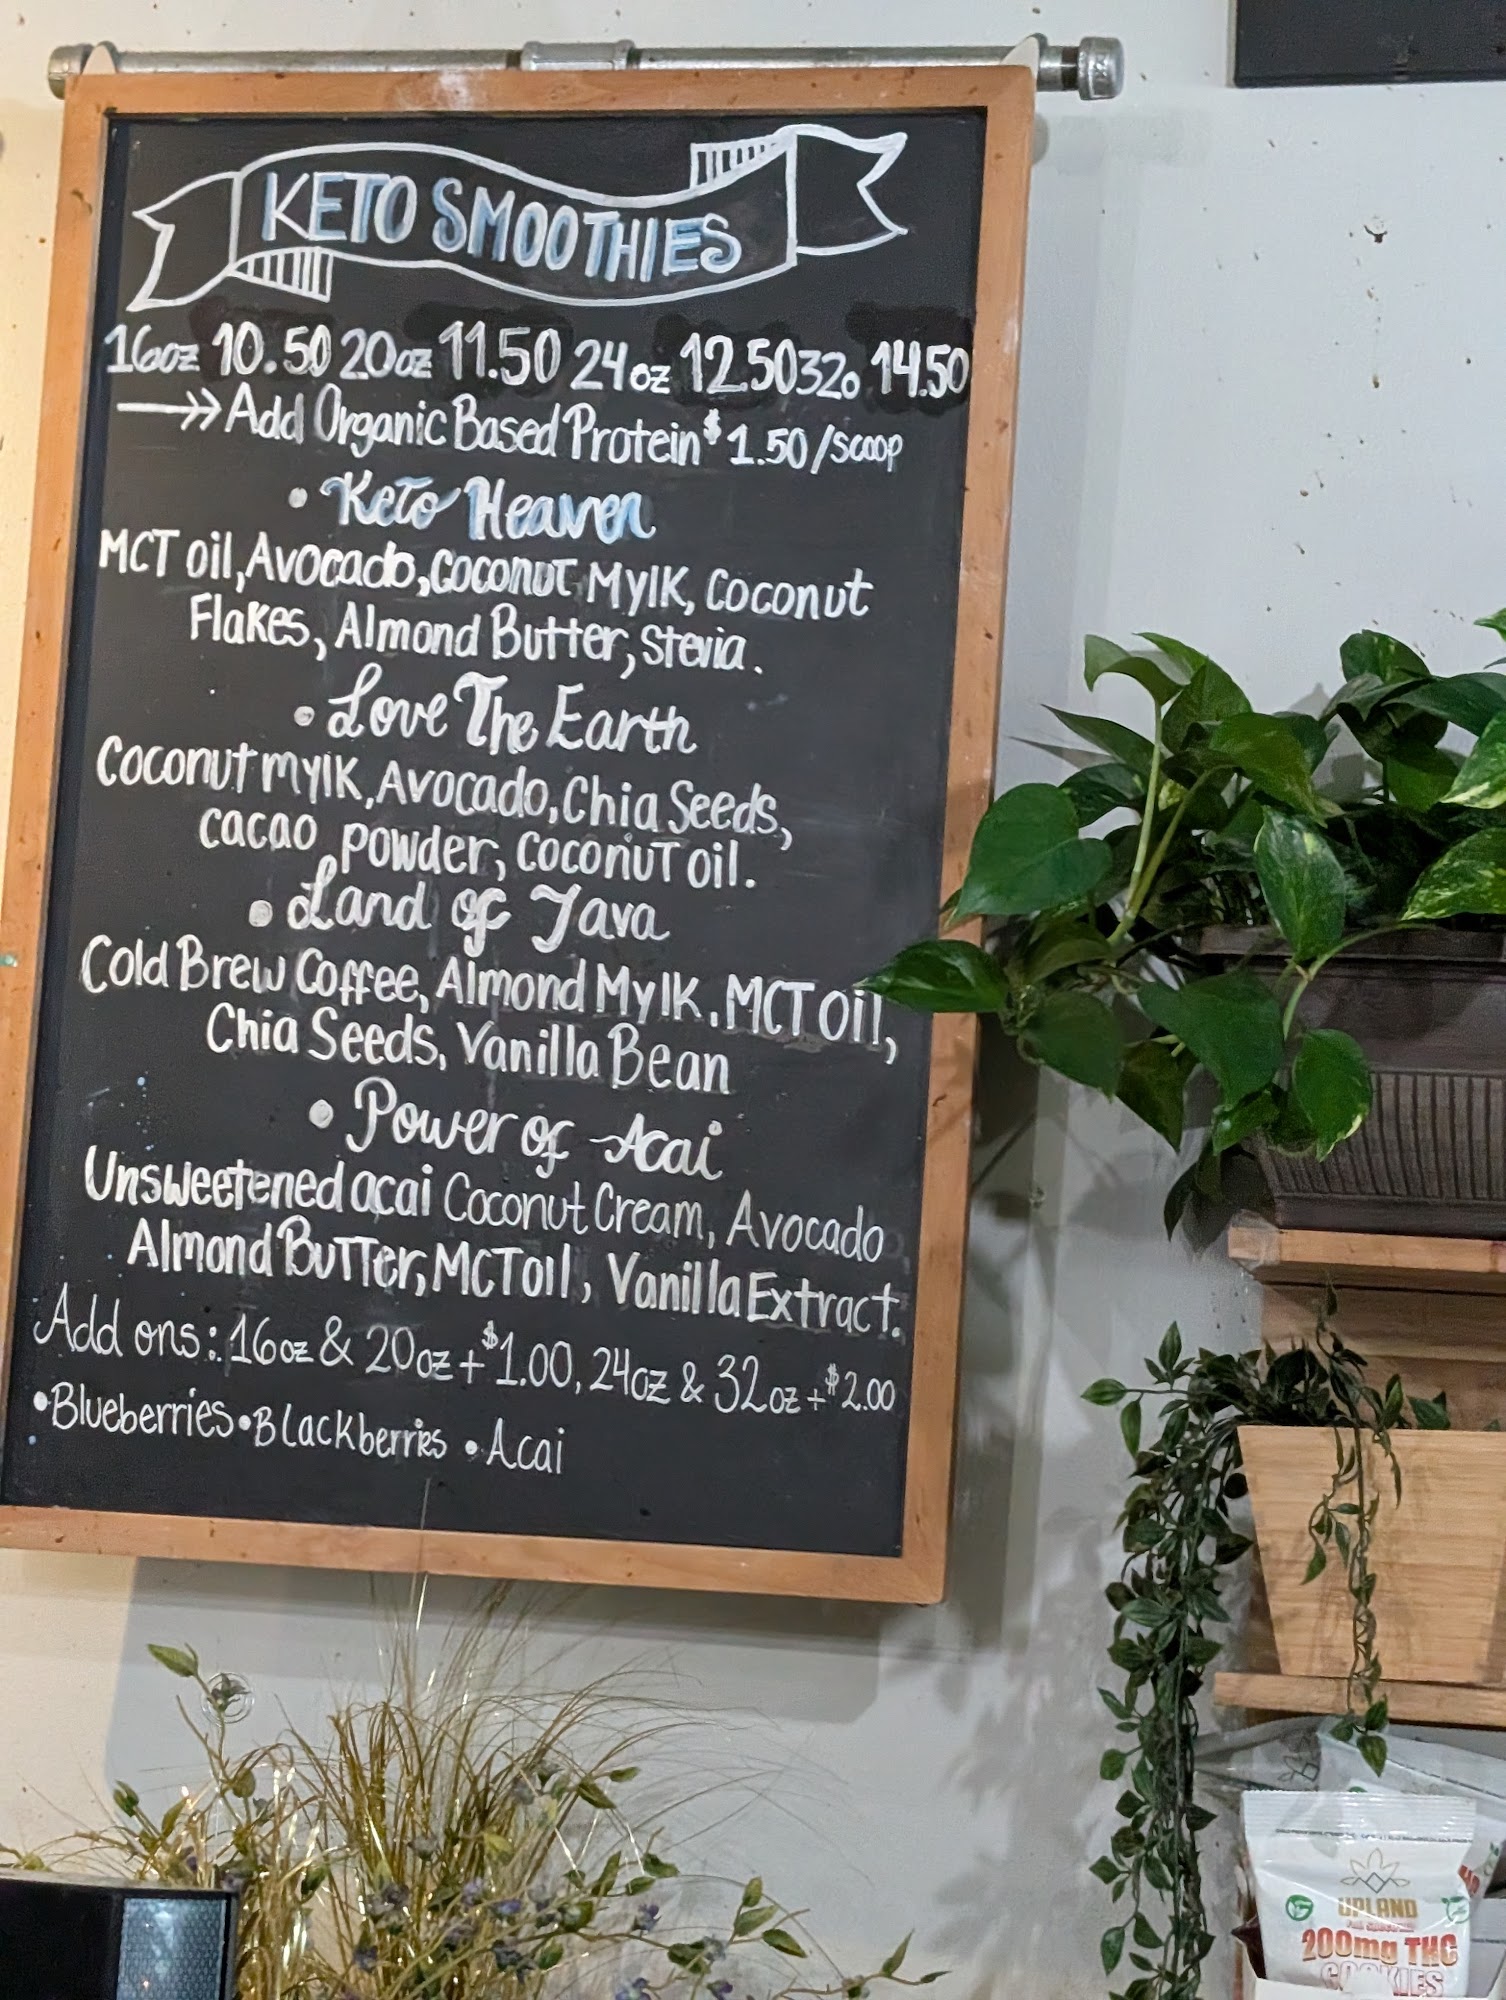 KETO SMOOTHIES
16oz 10.50 20oz 11.50 24oz 12.50 32o 14.50
Add Organic Based Protein $1.50/scoop
• Keto Heaven
MCT oil, Avocado, Coconut Mylk, Coconut
Flakes, Almond Butter, Stevia.
• Love The Earth
Coconut mylk, Avocado, Chia Seeds,
cacao powder, Coconut oil.
• Land of Java
Cold Brew Coffee, Almond Mylk, MCT Oil,
Chia Seeds, Vanilla Bean
• Power of Acai
Unsweetened acai Coconut Cream, Avocado
Almond Butter, MCT oil, Vanilla Extract.
Add ons: 16oz & 20oz + $1.00, 24oz & 32oz + $2.00
• Blueberries • Blackberries • Acai
UPLAND
200mg THC
COOKIES